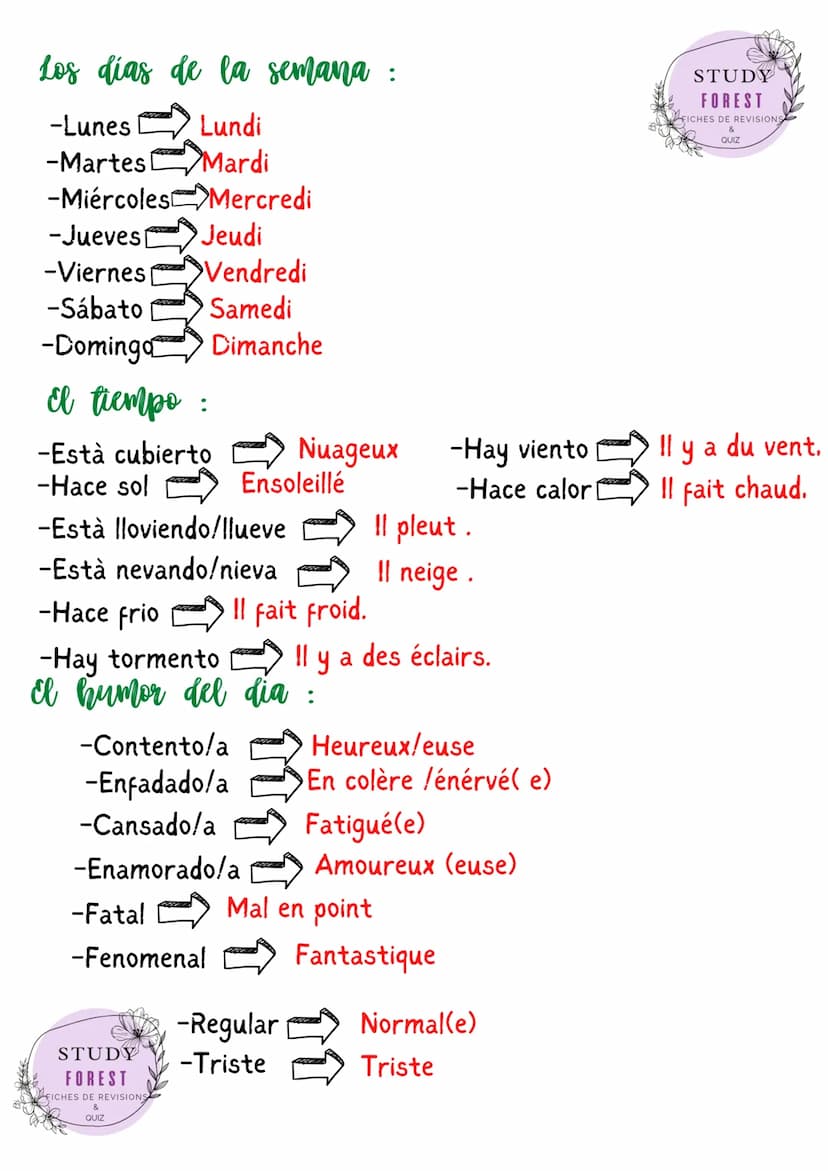 Los días de la semana :
STUDY
FOREST
FICHES DE REVISIONS
&
QUIZ
-Lunes Lundi
-Martes Mardi
-Miércoles Mercredi
-Jueves Jeudi
-Viernes Vendredi
-Sábato Samedi
-Domingo Dimanche
El tiempo :
-Està cubierto Nuageux
-Hay viento Il y a du vent.
-Hace sol Ensoleillé
-Hace calor Il fait chaud.
-Està lloviendo/llueve Il pleut .
-Està nevando/nieva Il neige .
-Hace frio Il fait froid.
-Hay tormento Il y a des éclairs.
El humor del dia :
-Contento/a Heureux/euse
-Enfadado/a En colère /énérvé( e)
-Cansado/a Fatigué(e)
-Enamorado/a Amoureux (euse)
-Fatal Mal en point
-Fenomenal Fantastique
-Regular Normal(e)
-Triste Triste
STUDY
FOREST
FICHES DE REVISIONS
&
QUIZ